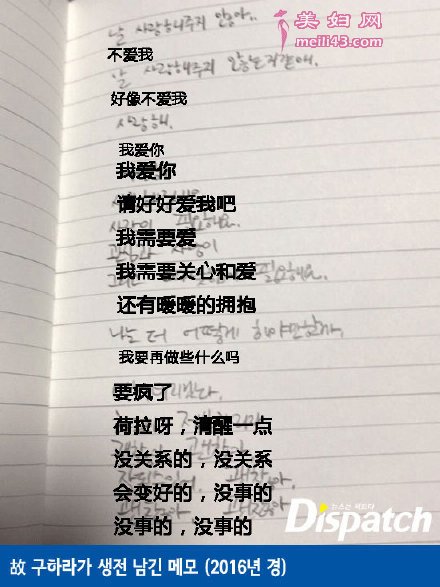 날 사랑해주지 않아..
美妇网
meili43.com
不爱我
날 사랑해주지 않는거같애.
好像不爱我
사랑해.
我爱你
我爱你
请好好爱我吧
사랑이 필요해요.
我需要爱
관심과 사랑이
我需要关心和爱
필요해요.
还有暖暖的拥抱
나는 더 어떻게 해야만할까.
我要再做些什么吗
要疯了
荷拉呀，清醒一点
没关系的，没关系
会变好的，没事的
괜찮아
没事的，没事的
뉴스는 팩트다
Dispatch
故 구하라가 생전 남긴 메모 (2016년 경)